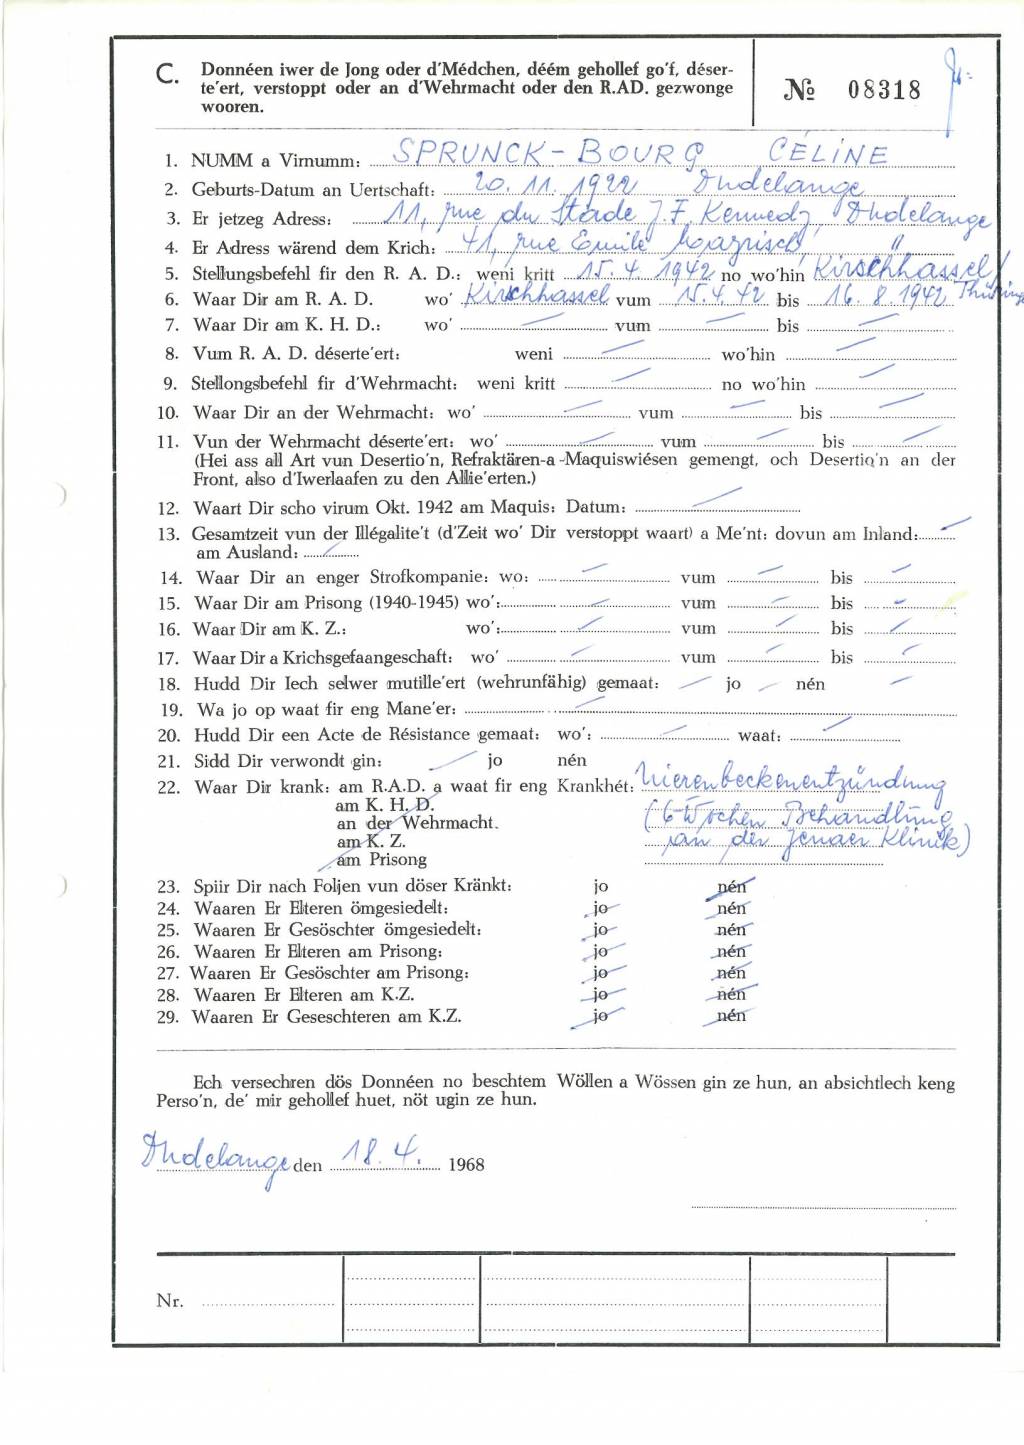 C. Donnéen iwer de Jong oder d'Médchen, déém gehollef go'f, déser-
te'ert, verstoppt oder an d'Wehrmacht oder den R.AD. gezwonge
wooren.
№ 08318
1. NUMM a Virnumm: SPRUNCK-BOURG CÉLINE
2. Geburts-Datum an Uertschaft: 20.11.1922 Dudelange
3. Er jetzeg Adress: 11, rue du Stade J.F. Kennedy, Dudelange
4. Er Adress wärend dem Krich: 41, rue Emile Mayrisch, "
5. Stellungsbefehl fir den R. A. D.: weni kritt 15.4.1942 no wo'hin Kirschhassel/
6. Waar Dir am R. A. D. wo' Kirschhassel vum 15.4.42 bis 16.8.1942 Thüringen
7. Waar Dir am K. H. D.: wo' — vum — bis —
8. Vum R. A. D. déserte'ert: weni — wo'hin —
9. Stellongsbefehl fir d'Wehrmacht: weni kritt — no wo'hin —
10. Waar Dir an der Wehrmacht: wo' — vum — bis —
11. Vun der Wehrmacht déserte'ert: wo' — vum — bis —
(Hei ass all Art vun Desertio'n, Refraktären-a-Maquiswiésen gemengt, och Desertio'n an der
Front, also d'Iwerlaafen zu den Allie'erten.)
12. Waart Dir scho virum Okt. 1942 am Maquis: Datum: —
13. Gesamtzeit vun der Illégalite't (d'Zeit wo' Dir verstoppt waart) a Me'nt: dovun am Inland: —
am Ausland: —
14. Waar Dir an enger Strofkompanie: wo: — vum — bis —
15. Waar Dir am Prisong (1940-1945) wo': — vum — bis —
16. Waar Dir am K. Z.: wo': — vum — bis —
17. Waar Dir a Krichsgefaangeschaft: wo' — vum — bis —
18. Hudd Dir Iech selwer mutille'ert (wehrunfähig) gemaat: — jo — nén —
19. Wa jo op waat fir eng Mane'er: —
20. Hudd Dir een Acte de Résistance gemaat: wo': — waat: —
21. Sidd Dir verwondt gin: — jo nén
22. Waar Dir krank: am R.A.D. a waat fir eng Krankhét: Nierenbeckenentzündung
am K. H. D.
an der Wehrmacht. (6 Wochen Behandlung
am K. Z. an der Jenaer Klinik)
am Prisong
23. Spiir Dir nach Foljen vun döser Kränkt: jo nén
24. Waaren Er Elteren ömgesiedelt: jo nén
25. Waaren Er Gesöschter ömgesiedelt: jo nén
26. Waaren Er Elteren am Prisong: jo nén
27. Waaren Er Gesöschter am Prisong: jo nén
28. Waaren Er Elteren am K.Z. jo nén
29. Waaren Er Geseschteren am K.Z. jo nén
Ech versechren dös Donnéen no beschtem Wöllen a Wössen gin ze hun, an absichtlech keng
Perso'n, de' mir gehollef huet, nöt ugin ze hun.
Dudelange den 18.4. 1968
Nr.